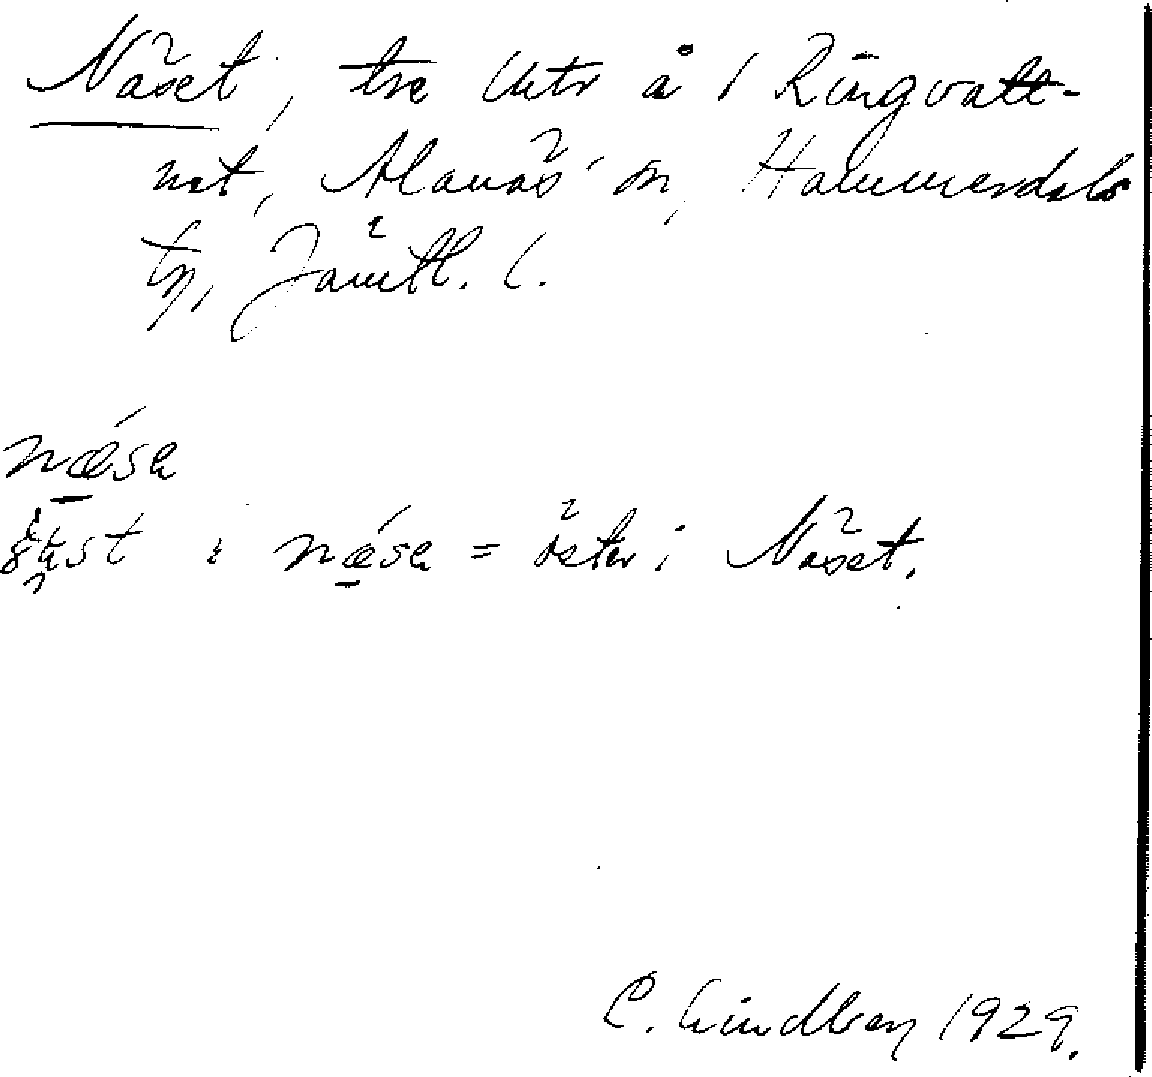 Näset, tre lhtr å / Ringvatt-
net, Alanäs sn, Hammerdals
tg, Jämtl. l.
næsa
i næsa = öster i Näset.
C. Lindberg 1929.